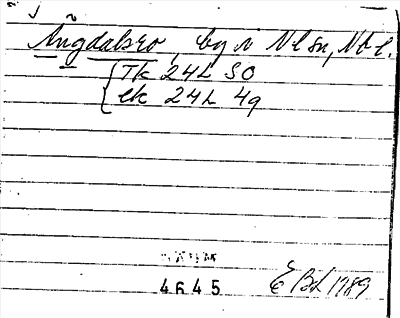 Ängdalsro, by n Nlsn, Nbl.
Tk 24L SO
ek 24L 4g
4645
E Bl 1989